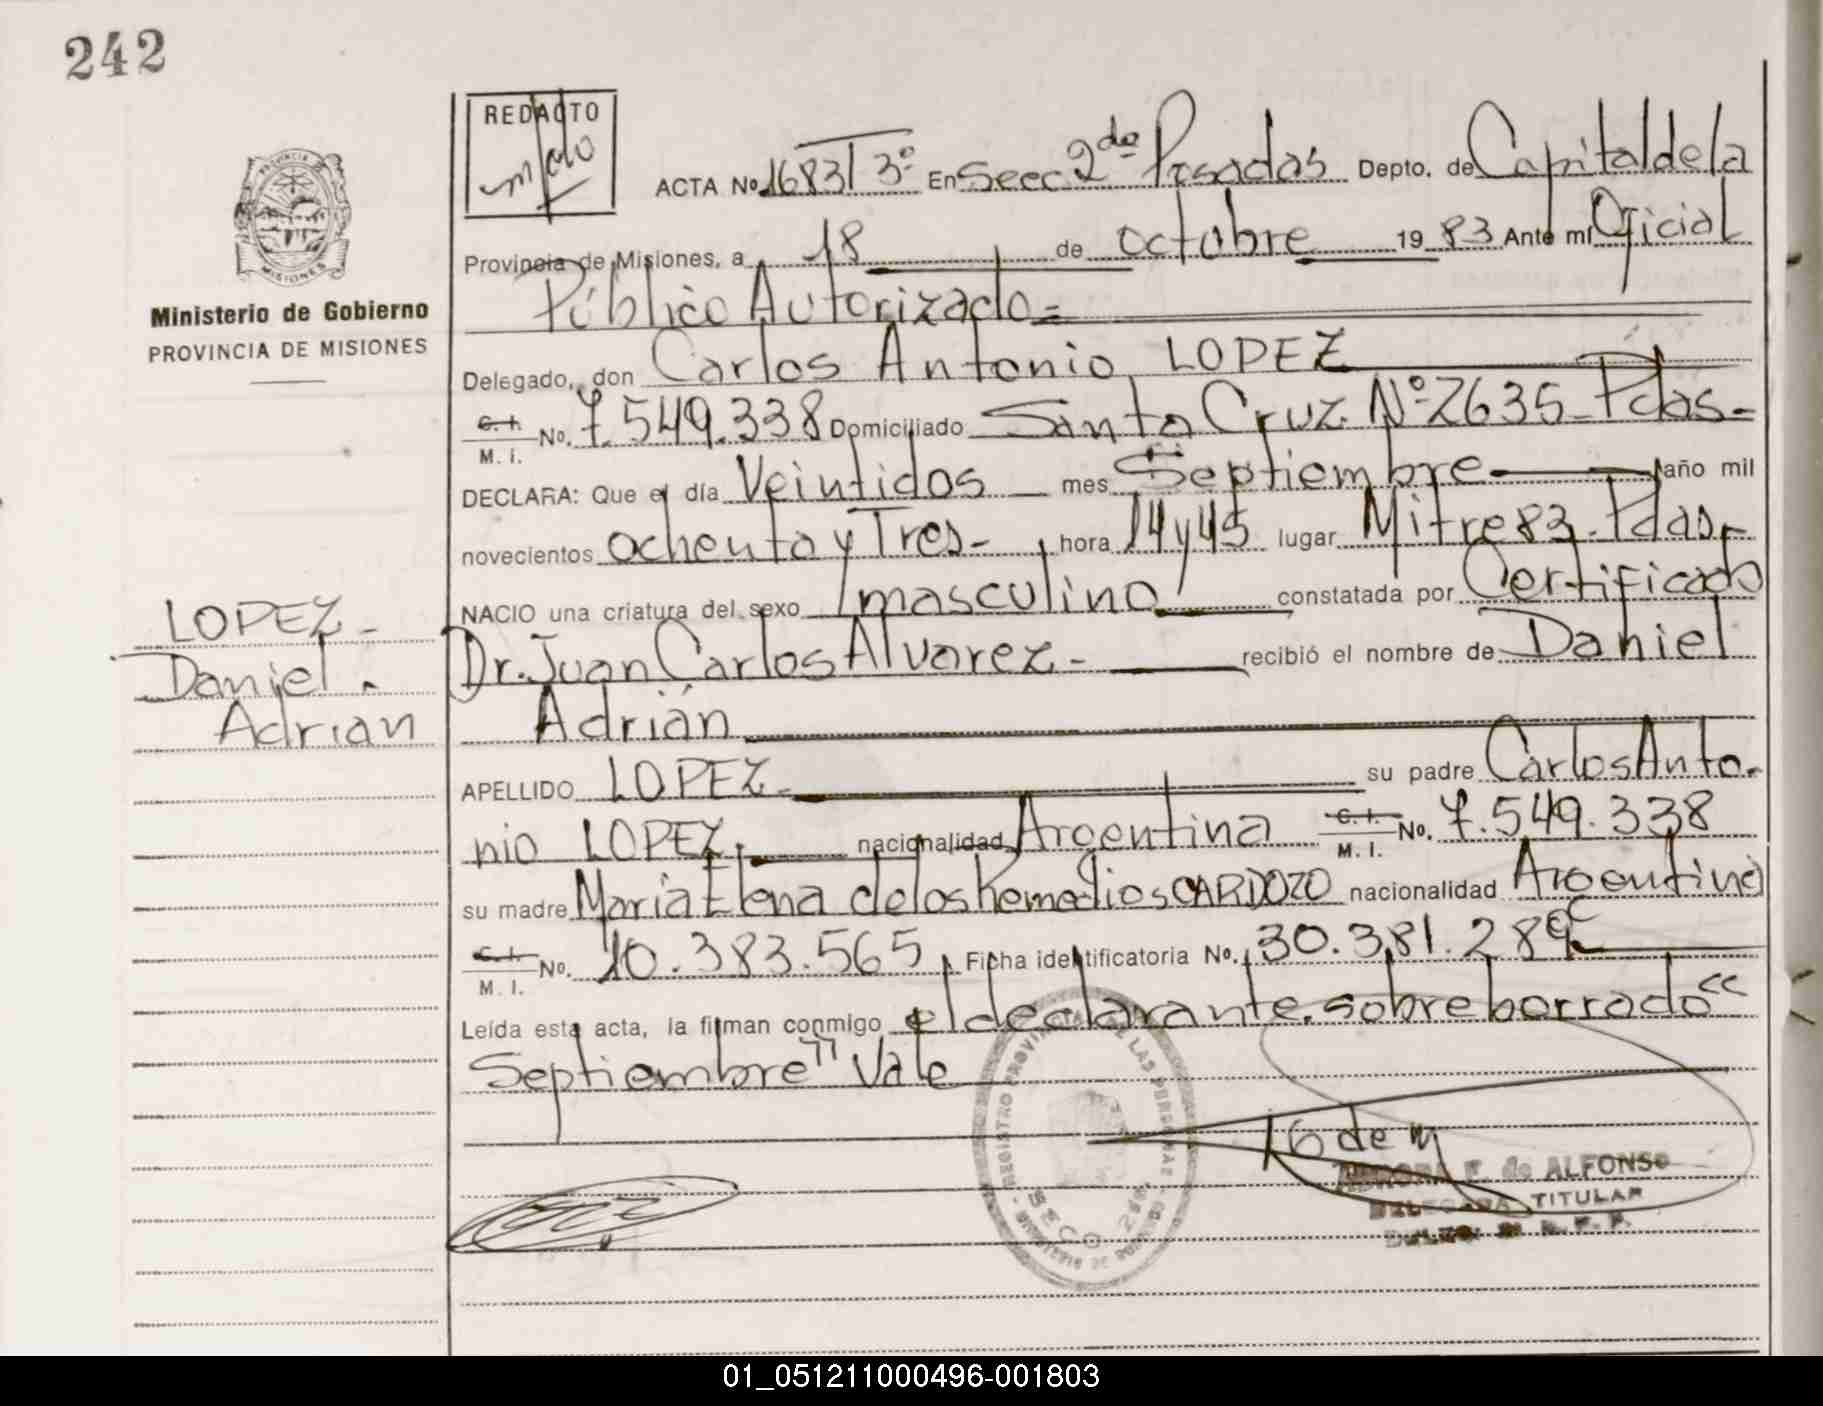 242
REDACTO
ACTA No. 1683 T 3º En Secc 2da Posadas Depto. de Capital de la
Provincia de Misiones, a 18 de octubre 19 83 Ante mí Oficial
Público Autorizado =
Ministerio de Gobierno
PROVINCIA DE MISIONES
Delegado, don Carlos Antonio LOPEZ
C. I.
M. I. No. 7.549.338 Domiciliado Santa Cruz Nº 2635 - Pdas -
DECLARA: Que el día Veintidos mes Septiembre año mil
novecientos ochenta y Tres - hora 14 y 45 lugar Mitre 83 - Pdas -
NACIO una criatura del sexo masculino constatada por Certificado
Dr. Juan Carlos Alvarez - recibió el nombre de Daniel
Adrián
LOPEZ -
Daniel.
Adrian
APELLIDO LOPEZ - su padre Carlos Anto-
nio LOPEZ. nacionalidad Argentina C. I.
M. I. No. 7.549.338
su madre María Elena de los Remedios CARDOZO nacionalidad Argentina
C. I.
M. I. No. 10.383.565 Ficha identificatoria No. 30.381.289
Leída esta acta, la firman conmigo el declarante. sobreborrado "
Septiembre" Vale
REGISTRO PROVINCIAL DE LAS PERSONAS
SECC 2da
MINISTERIO DE GOBIERNO
E. de ALFONSO
DELEGADA TITULAR
01_051211000496-001803